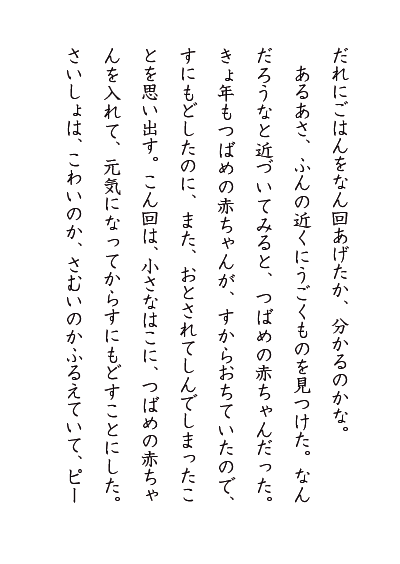 だれにごはんをなん回あげたか、分かるのかな。
　あるあさ、ふんの近くにうごくものを見つけた。なん
だろうなと近づいてみると、つばめの赤ちゃんだった。
きょ年もつばめの赤ちゃんが、すからおちていたので、
すにもどしたのに、また、おとされてしんでしまったこ
とを思い出す。こん回は、小さなはこに、つばめの赤ちゃ
んを入れて、元気になってからすにもどすことにした。
さいしょは、こわいのか、さむいのかふるえていて、ピー